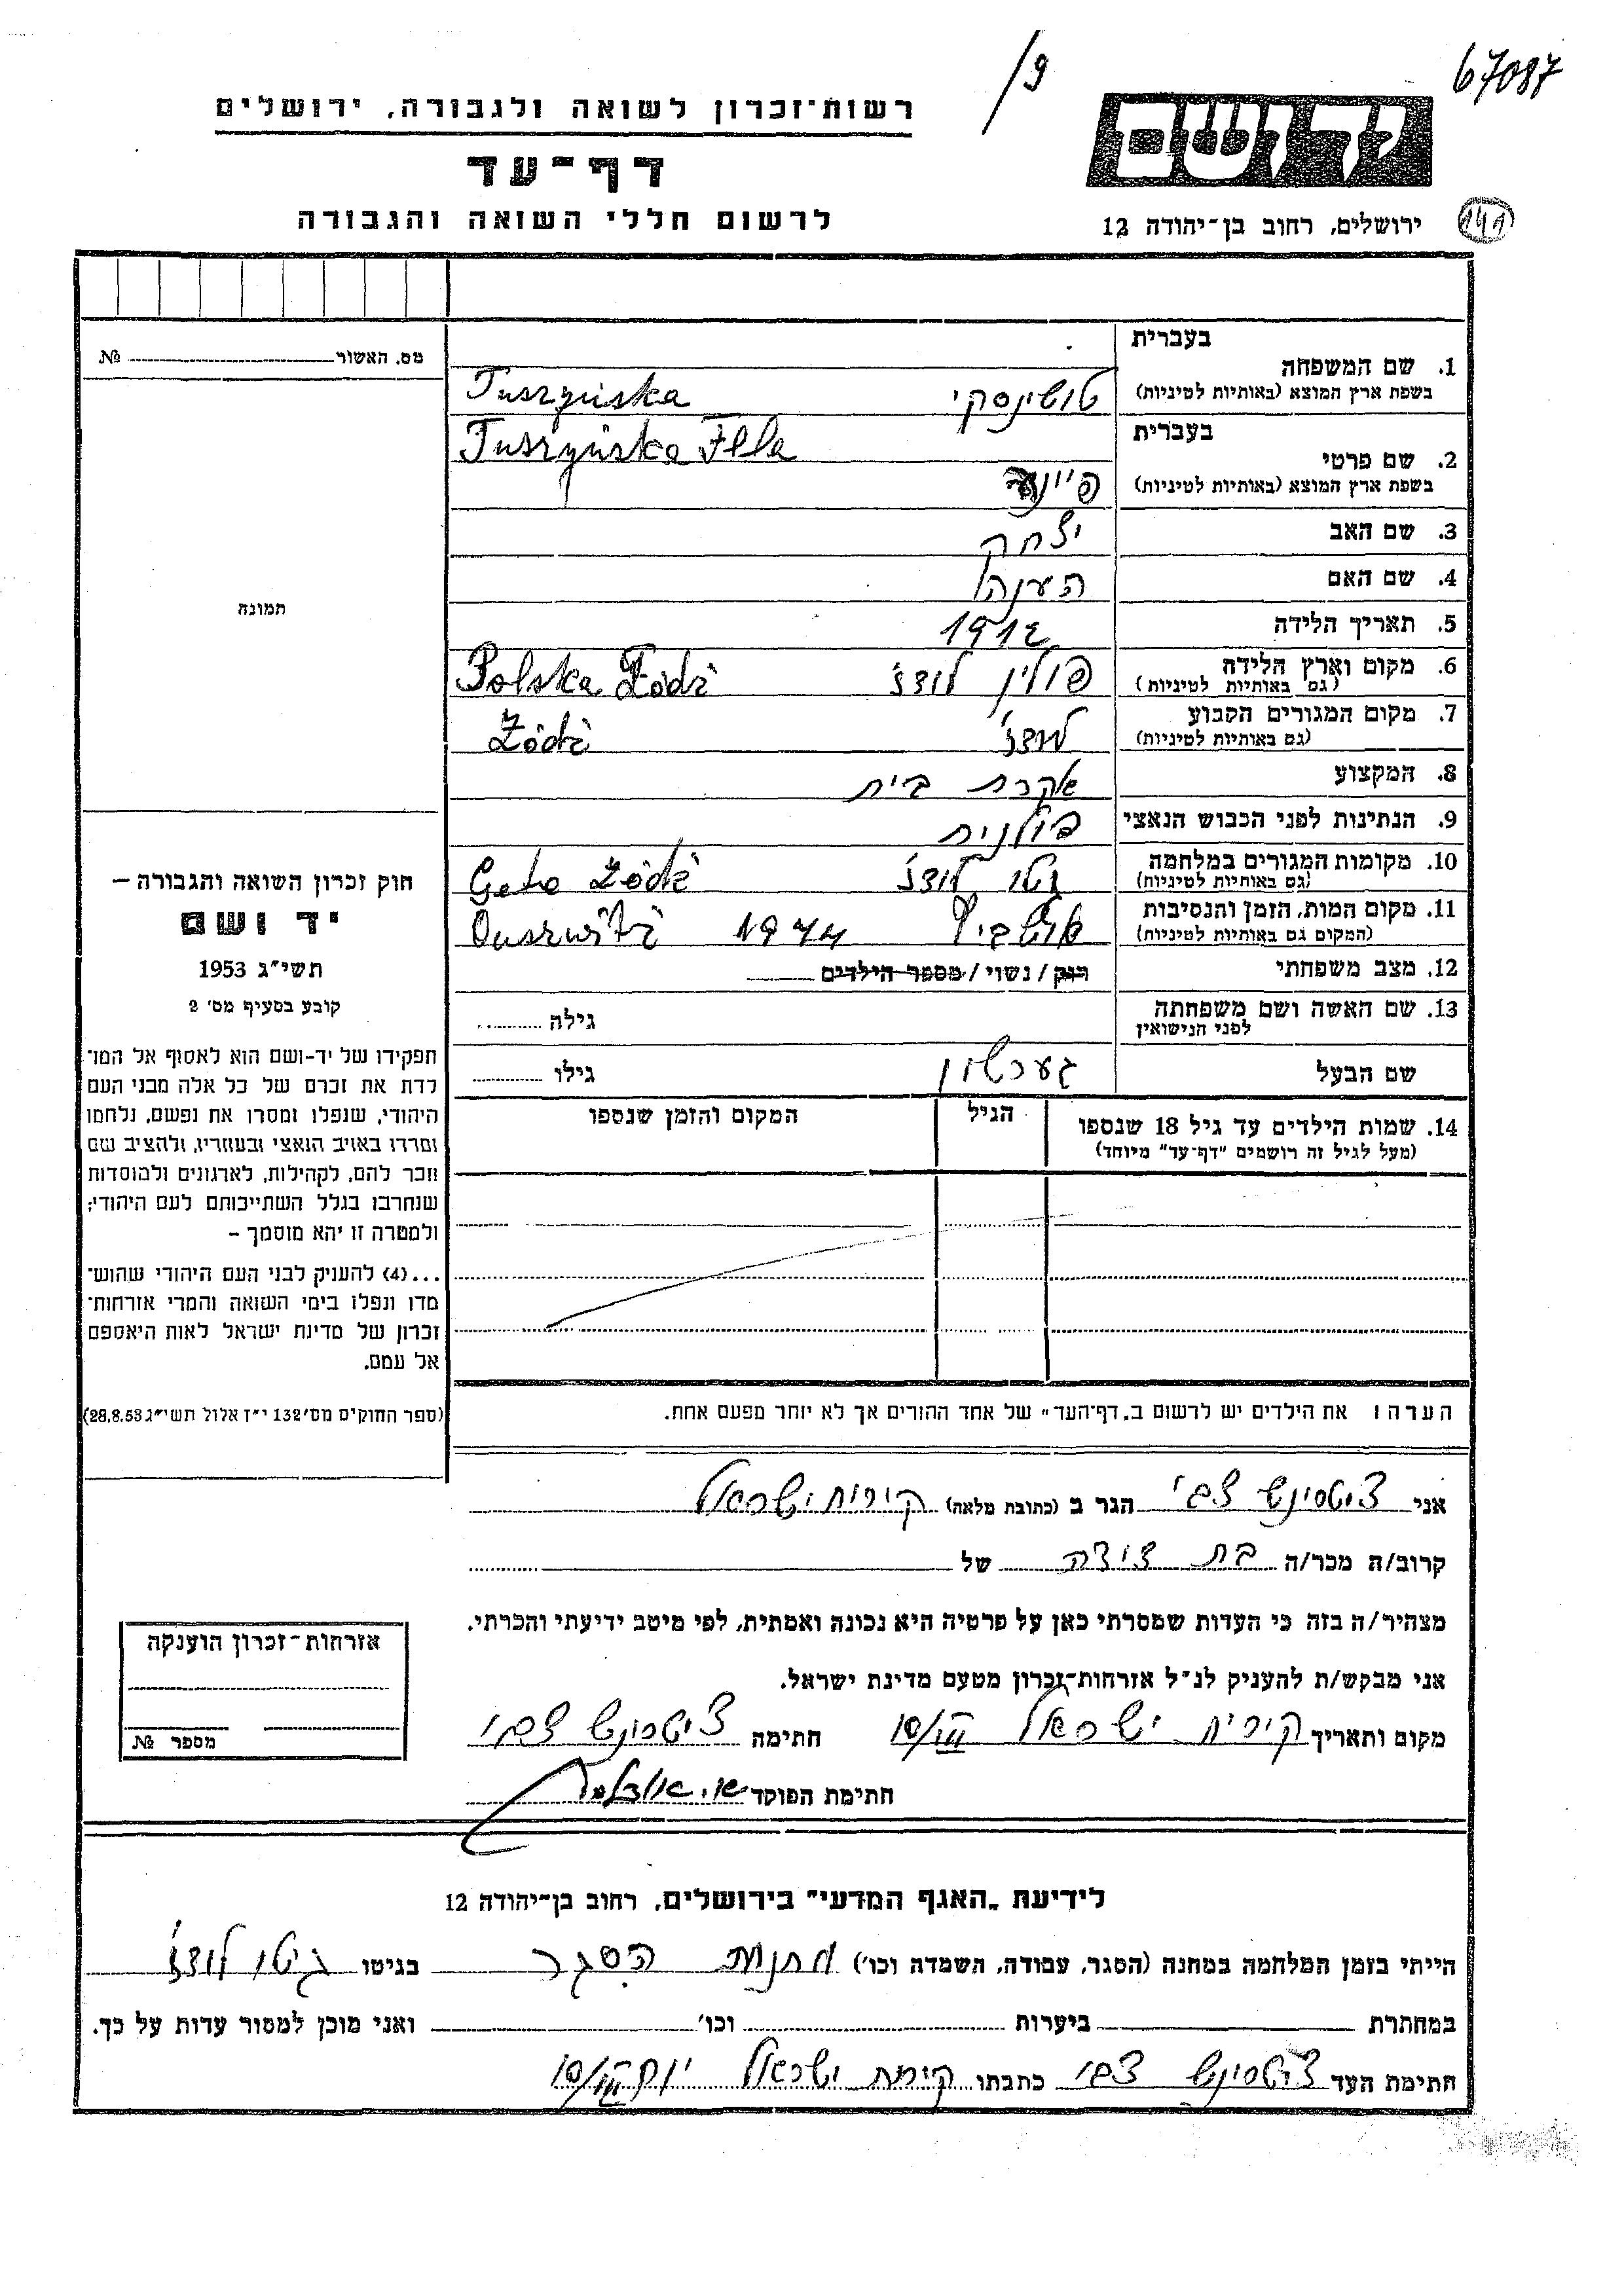 67087
/9
ידושם
רשות־זכרון לשואה ולגבורה, ירושלים
דף־עד
לרשום חללי השואה והגבורה
ירושלים, רחוב בן־יהודה 12
141
מס. האשור № 
בעברית
1. שם המשפחה
בשפת ארץ המוצא (באותיות לטיניות)
טושינסקי Tuszyńska
בעברית
Tuszyńska Fela
2. שם פרטי
בשפת ארץ המוצא (באותיות לטיניות)
3. שם האב יצחק
4. שם האם הענה
5. תאריך הלידה 1912
6. מקום וארץ הלידה פולין לודז' Polska Łódź
(גם באותיות לטיניות)
7. מקום המגורים הקבוע לודז' Łódź
(גם באותיות לטיניות)
8. המקצוע עקרת בית
9. הנתינות לפני הכבוש הנאצי פולנית
10. מקומות המגורים במלחמה גטו לודז' Geto Łódź
(גם באותיות לטיניות)
11. מקום המות, הזמן והנסיבות אושביץ 1944 Ouszwitź
(המקום גם באותיות לטיניות)
12. מצב משפחתי רוק / נשוי / מספר הילדים
13. שם האשה ושם משפחתה גילה
לפני הנישואין
שם הבעל גערשון גילו
14. שמות הילדים עד גיל 18 שנספו הגיל המקום והזמן שנספו
(מעל לגיל זה רושמים "דף־עד" מיוחד)
הערה: את הילדים יש לרשום ב„דף־העד" של אחד ההורים אך לא יותר מפעם אחת.
תמונה
חוק זכרון השואה והגבורה —
יד ושם
תשי"ג 1953
קובע בסעיף מס' 2
תפקידו של יד-ושם הוא לאסוף אל המו־
לדת את זכרם של כל אלה מבני העם
היהודי, שנפלו ומסרו את נפשם, נלחמו
ומרדו באויב הנאצי ובעוזריו, ולהציב שם
וזכר להם, לקהילות, לארגונים ולמוסדות
שנחרבו בגלל השתייכותם לעם היהודי;
ולמטרה זו יהא מוסמך –
...(4) להעניק לבני העם היהודי שהוש־
מדו ונפלו בימי השואה והמרי אזרחות־
זכרון של מדינת ישראל לאות היאספם
אל עמם.
(ספר החוקים מס' 132 י"ז אלול תשי"ג 28.8.53)
אני הגר ב (כתובת מלאה) קירית ישראל
קרוב/ה מכר/ה בת דודה של
מצהיר/ה בזה כי העדות שמסרתי כאן על פרטיה היא נכונה ואמתית, לפי מיטב ידיעתי והכרתי.
אני מבקש/ת להעניק לנ"ל אזרחות־זכרון מטעם מדינת ישראל.
מקום ותאריך קירית ישראל 10/III חתימה
חתימת הפוקד
אזרחות־זכרון הוענקה
מספר №
לידיעת „האגף המדעי" בירושלים, רחוב בן־יהודה 12
הייתי בזמן המלחמה במחנה (הסגר, עבודה, השמדה וכו') מחנות הסגר בגיטו גיטו לודז'
במחתרת ביערות וכו' ואני מוכן למסור עדות על כך.
חתימת העד כתבתו קירית ישראל 10/III